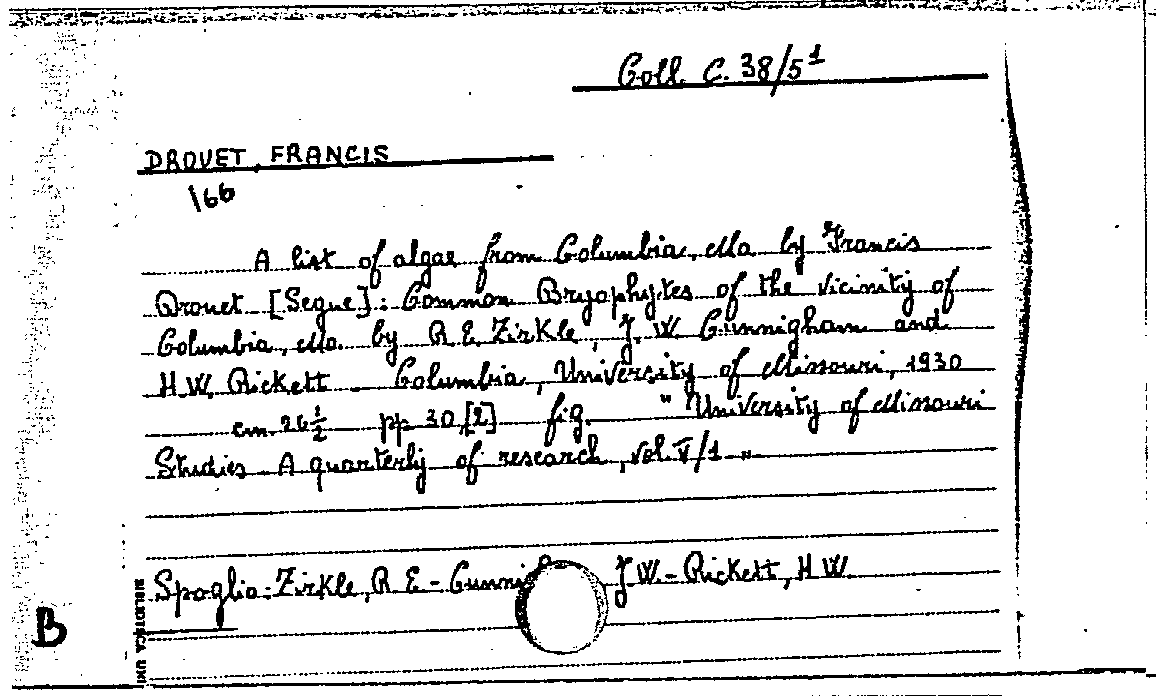 Coll. C. 38/5¹
DROUET, FRANCIS
166
A list of algae from Columbia, Mo. by Francis
Drouet [Segue]: Common Bryophytes of the vicinity of
Columbia, Mo. by R. E. Zirkle, J. W. Cunnigham and
H. W. Rickett - Columbia, University of Missouri, 1930
cm. 26 1/2 pp 30, [2] fig. "University of Missouri
Studies - A quarterly of research, vol. V/1 "
Spoglio: Zirkle, R. E. - J. W. - Rickett, H. W.
B
BIBLIOTECA